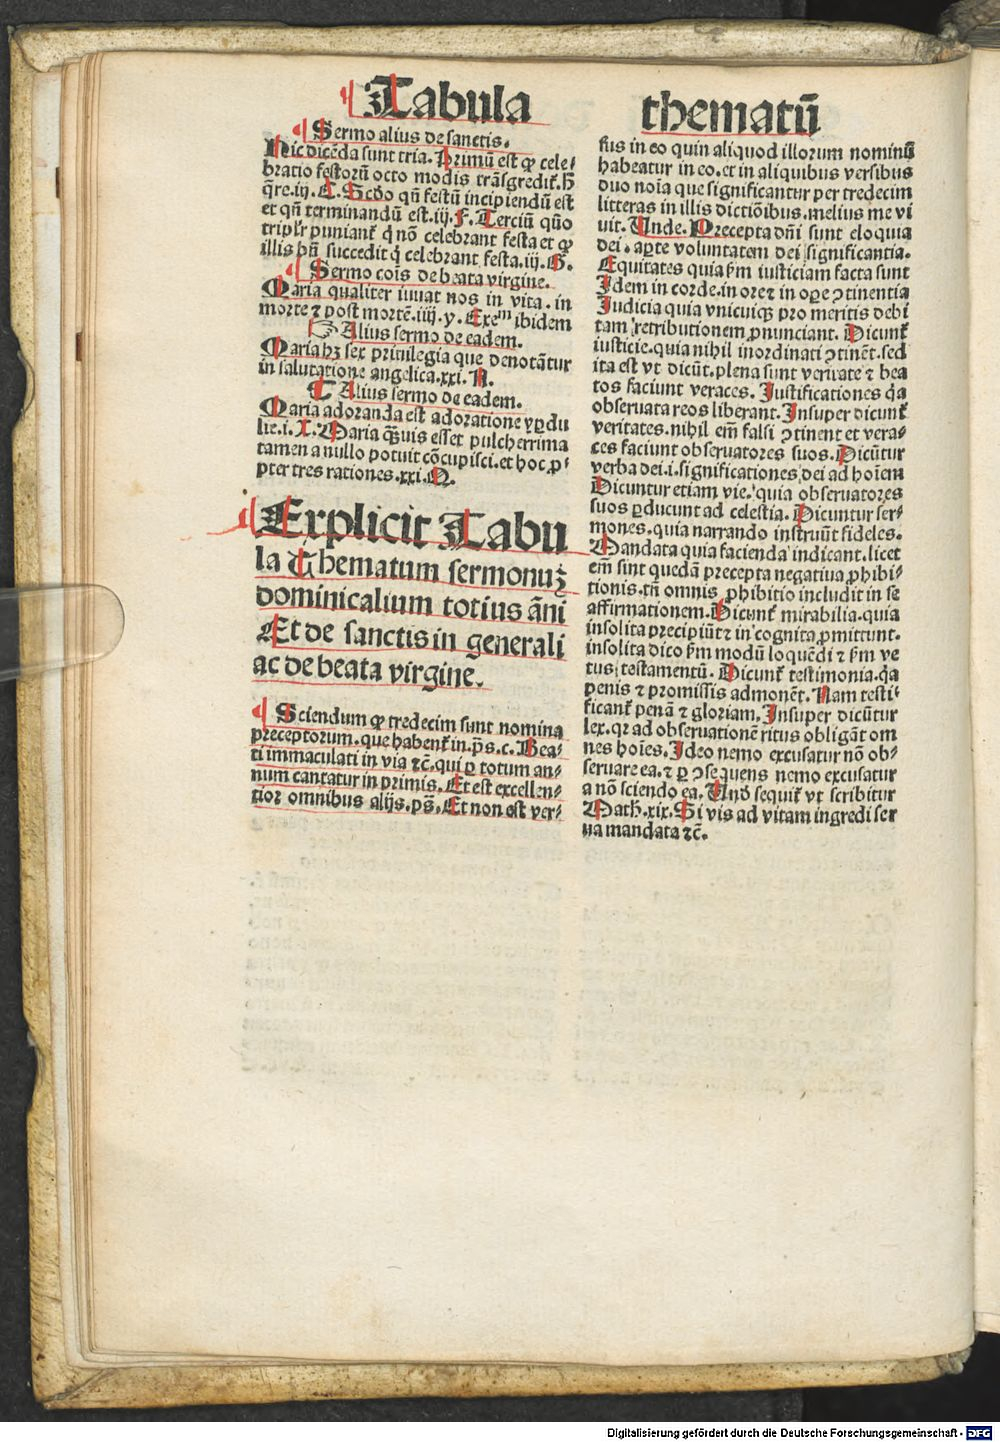 Tabula thematū
Sermo alius de sanctis.
Hic dicēda sunt tria. Primū est qꝫ cele-
bratio festorū octo modis trāsgredit᷑. h̄
q̄re. iij. E. Scd̄o qn̄ festū incipiendū est
et qn̄ terminandū est. iij. F. Terciū quō
triplr̄ puniant᷑ q̇ nō celebrant festa et qꝫ
illis bn̄ succedit q̇ celebrant festa. iij. G.
Sermo cōis de beata virgine.
Maria qualiter iuuat nos in vita. in
morte ⁊ post mortē. iiij. y. Exeᵐ ibidem
Alius sermo de eadem.
Maria hꝫ sex priuilegia que denotātur
in salutatione angelica. xxi. A.
Alius sermo de eadem.
Maria adoranda est adoratione yꝑdu
lie. i. X. Maria q̄uis esset pulcherrima
tamen a nullo potuit cōcupisci. et hoc ꝓ-
pter tres rationes. xxi. N.
Explicit Tabu
la Thematum sermonuꝫ
dominicalium totius āni
Et de sanctis in generali
ac de beata virgine.
Sciendum qꝫ tredecim sunt nomina
preceptorum. que habent᷑ in. ps̄. c. Bea-
ti immaculati in via ⁊c̄. qui ꝑ totum an-
num cantatur in primis. Et est excellen-
tior omnibus alijs. ps̄. Et non est ver-
sus in eo quin aliquod illorum nominū
habeatur in eo. et in aliquibus versibus
duo noīa que significantur per tredecim
litteras in illis dictiōibus. melius me vi
uit. Unde. Precepta dn̄i sunt eloquia
dei. aꝑte voluntatem dei significantia.
Equitates quia ẜm iusticiam facta sunt
Idem in corde. in ore ⁊ in oꝑe ꝯtinentia
Iudicia quia vnicuiqꝫ pro meritis debi
tam retributionem ꝓnunciant. Dicunt᷑
iusticie. quia nihil inordinati ꝯtinēt. sed
ita est vt dicūt. plena sunt veritate ⁊ bea
tos faciunt veraces. Iustificationes q̇a
obseruata reos liberant. Insuper dicunt᷑
veritates. nihil em̄ falsi ꝯtinent et vera-
ces faciunt obseruatores suos. Dicūtur
verba dei. i. significationes dei ad hoīem
Dicuntur etiam vie. quia obseruatores
suos ꝑducunt ad celestia. Dicuntur ser-
mones. quia narrando instruūt fideles.
Mandata quia facienda indicant. licet
em̄ sint quedā precepta negatiua ꝓhibi-
tionis. tn̄ omnis ꝓhibitio includit in se
affirmationem. Dicunt᷑ mirabilia. quia
insolita precipiūt ⁊ in cognita ꝓmittunt.
insolita dico ẜm modū loquēdi ⁊ ẜm ve
tus testamentū. Dicunt᷑ testimonia. q̇a
penis ⁊ promissis admonēt. Nam testi-
ficant᷑ penā ⁊ gloriam. Insuper dicūtur
lex. qꝛ ad obseruationē ritus obligāt om
nes hoīes. Ideo nemo excusatur nō ob-
seruare ea. ⁊ ꝑ ꝯsequens nemo excusatur
a nō sciendo ea. Und̄ sequit᷑ vt scribitur
Math. xix. Si vis ad vitam ingredi ser
ua mandata ⁊c̄.
Digitalisierung gefördert durch die Deutsche Forschungsgemeinschaft - DFG